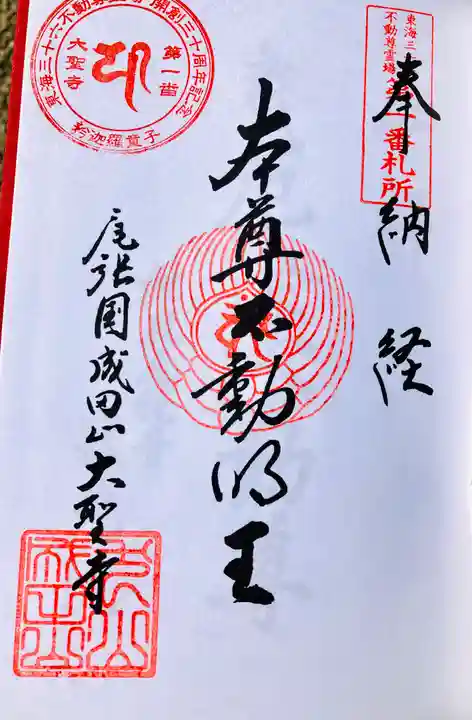 東海三
不動尊霊場
番札所
奉納経
本尊不動明王
尾張国成田山大聖寺
東海三十六不動尊霊場開創三十周年記念
第一番
大聖寺
矜迦羅童子